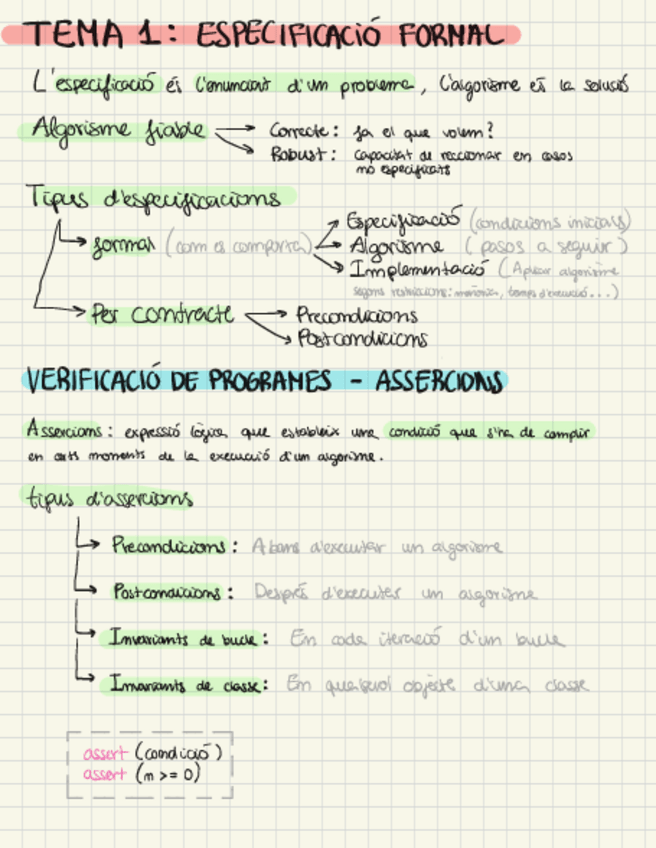 TEMA 1: ESPECIFICACIÓ FORMAL
L'especificació és l'enunciat d'un problema, l'algorisme és la solució
Algorisme fiable
Correcte: fa el que volem?
Robust: capacitat de reaccionar en casos
no especificats
Tipus d'especificacions
formal (com es comporta)
Especificació (condicions inicials)
Algorisme (pasos a seguir)
Implementació (Aplicar algorisme
segons restriccions: memòria, temps d'execució...)
Per contracte
Precondicions
Postcondicions
VERIFICACIÓ DE PROGRAMES - ASSERCIONS
Assercions: expressió lògica que estableix una condició que s'ha de complir
en certs moments de la execució d'un algorisme.
tipus d'assercions
Precondicions: Abans d'executar un algorisme
Postcondicions: Després d'executar un algorisme
Invariants de bucle: En cada iteració d'un bucle
Invariants de classe: En qualsevol objecte d'una classe
assert (condició)
assert (n >= 0)